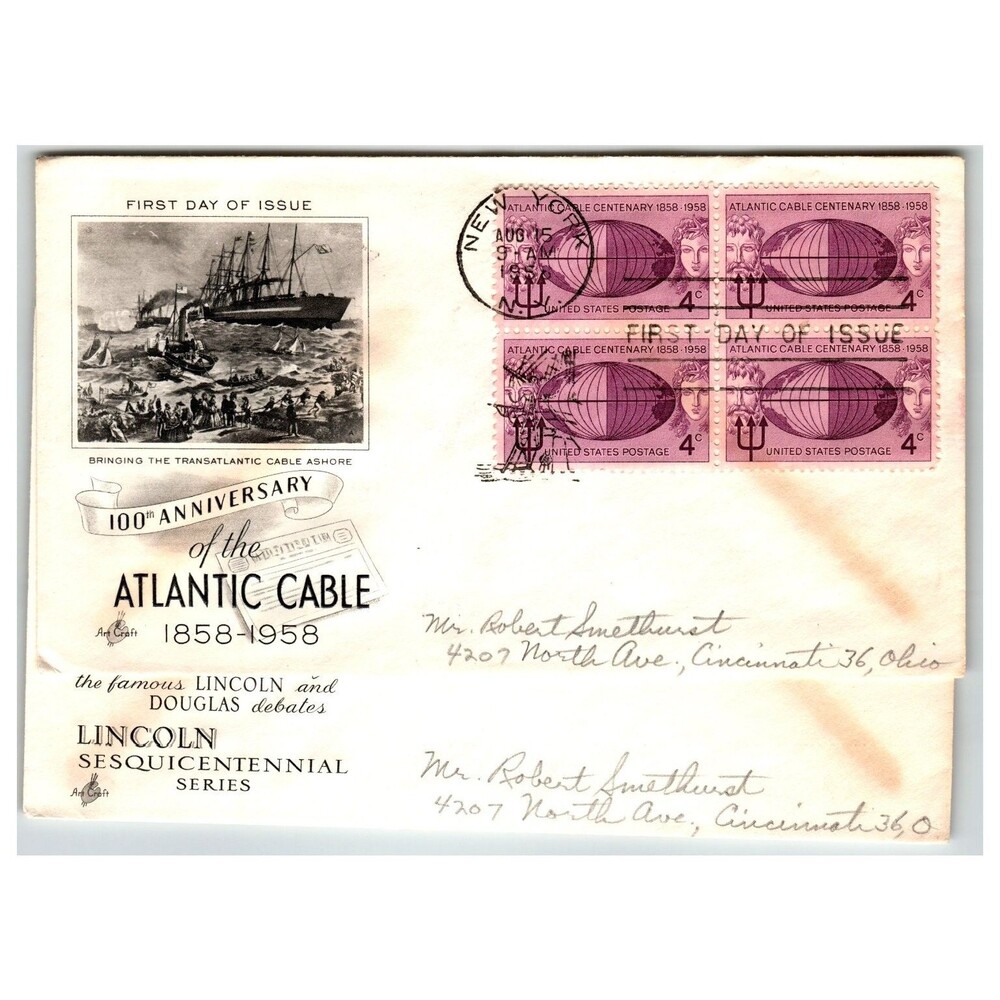 FIRST DAY OF ISSUE
BRINGING THE TRANSATLANTIC CABLE ASHORE
100th ANNIVERSARY
of the
ATLANTIC CABLE
1858-1958
Art Craft
NEW YORK
AUG 15
9 AM
1958
N.Y.
ATLANTIC CABLE CENTENARY 1858·1958
UNITED STATES POSTAGE 4c
ATLANTIC CABLE CENTENARY 1858·1958
UNITED STATES POSTAGE 4c
FIRST DAY OF ISSUE
ATLANTIC CABLE CENTENARY 1858·1958
UNITED STATES POSTAGE 4c
ATLANTIC CABLE CENTENARY 1858·1958
UNITED STATES POSTAGE 4c
Mr. Robert Smethurst
4207 North Ave., Cincinnati 36, Ohio
the famous LINCOLN and
DOUGLAS debates
LINCOLN
SESQUICENTENNIAL
SERIES
Art Craft
Mr. Robert Smethurst
4207 North Ave., Cincinnati 36, O